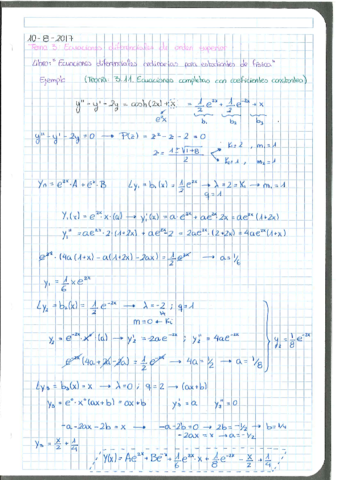 10-8-2017
Tema 5: Ecuaciones diferenciales de orden superior
Libro: "Ecuaciones diferenciales ordinarias para estudiantes de física"
Ejemplo (Teoría 5.11. Ecuaciones completas con coeficientes constantes)
y'' - y' - 2y = cosh(2x) + x = 1/2 e^2x + 1/2 e^-2x + x
e^0x b₁ b₂ b₃
y'' - y' - 2y = 0 → P(z) = z² - z - 2 = 0
z = (1 ± √(1+8))/2
m₁ = 1
m₂ = 1
y_h = e^2x · A + e^-x · B Ly₁ = b₁(x) = 1/2 e^2x → λ = 2 = K₁ → m₁ = 1
q = 1
y₁(x) = e^2x · x · (a) → y₁'(x) = a·e^2x + ae^2x · 2x = ae^2x(1+2x)
y₁'' = ae^2x · 2 · (1+2x) + ae^2x · 2 = 2ae^2x(2+2x) = 4ae^2x(1+x)
e^2x · (4a(1+x) - a(1+2x) - 2ax) = 1/2 e^2x → a = 1/6
y₁ = 1/6 x e^2x
Ly₂ = b₂(x) = 1/2 e^-2x → λ = -2 ; q = 1
m = 0 ←
y₂ = e^-2x · x⁰ (a) → y₂' = -2ae^-2x ; y₂'' = 4ae^-2x
y₂ = 1/8 e^-2x
e^-2x (4a + 2a - 2a) = 1/2 e^-2x → 4a = 1/2 → a = 1/8
Ly₃ = b₃(x) = x → λ = 0 ; q = 2 → (ax+b)
y₃ = e⁰ · x⁰ (ax+b) = ax+b y₃' = a y₃'' = 0
-a - 2ax - 2b = x → -a - 2b = 0 → 2b = -1/2 → b = 1/4
-2ax = x → a = -1/2
1/4
Y(x) = Ae^2x + Be^-x + 1/6 e^2x · x + 1/8 e^-2x - x/2 + 1/4